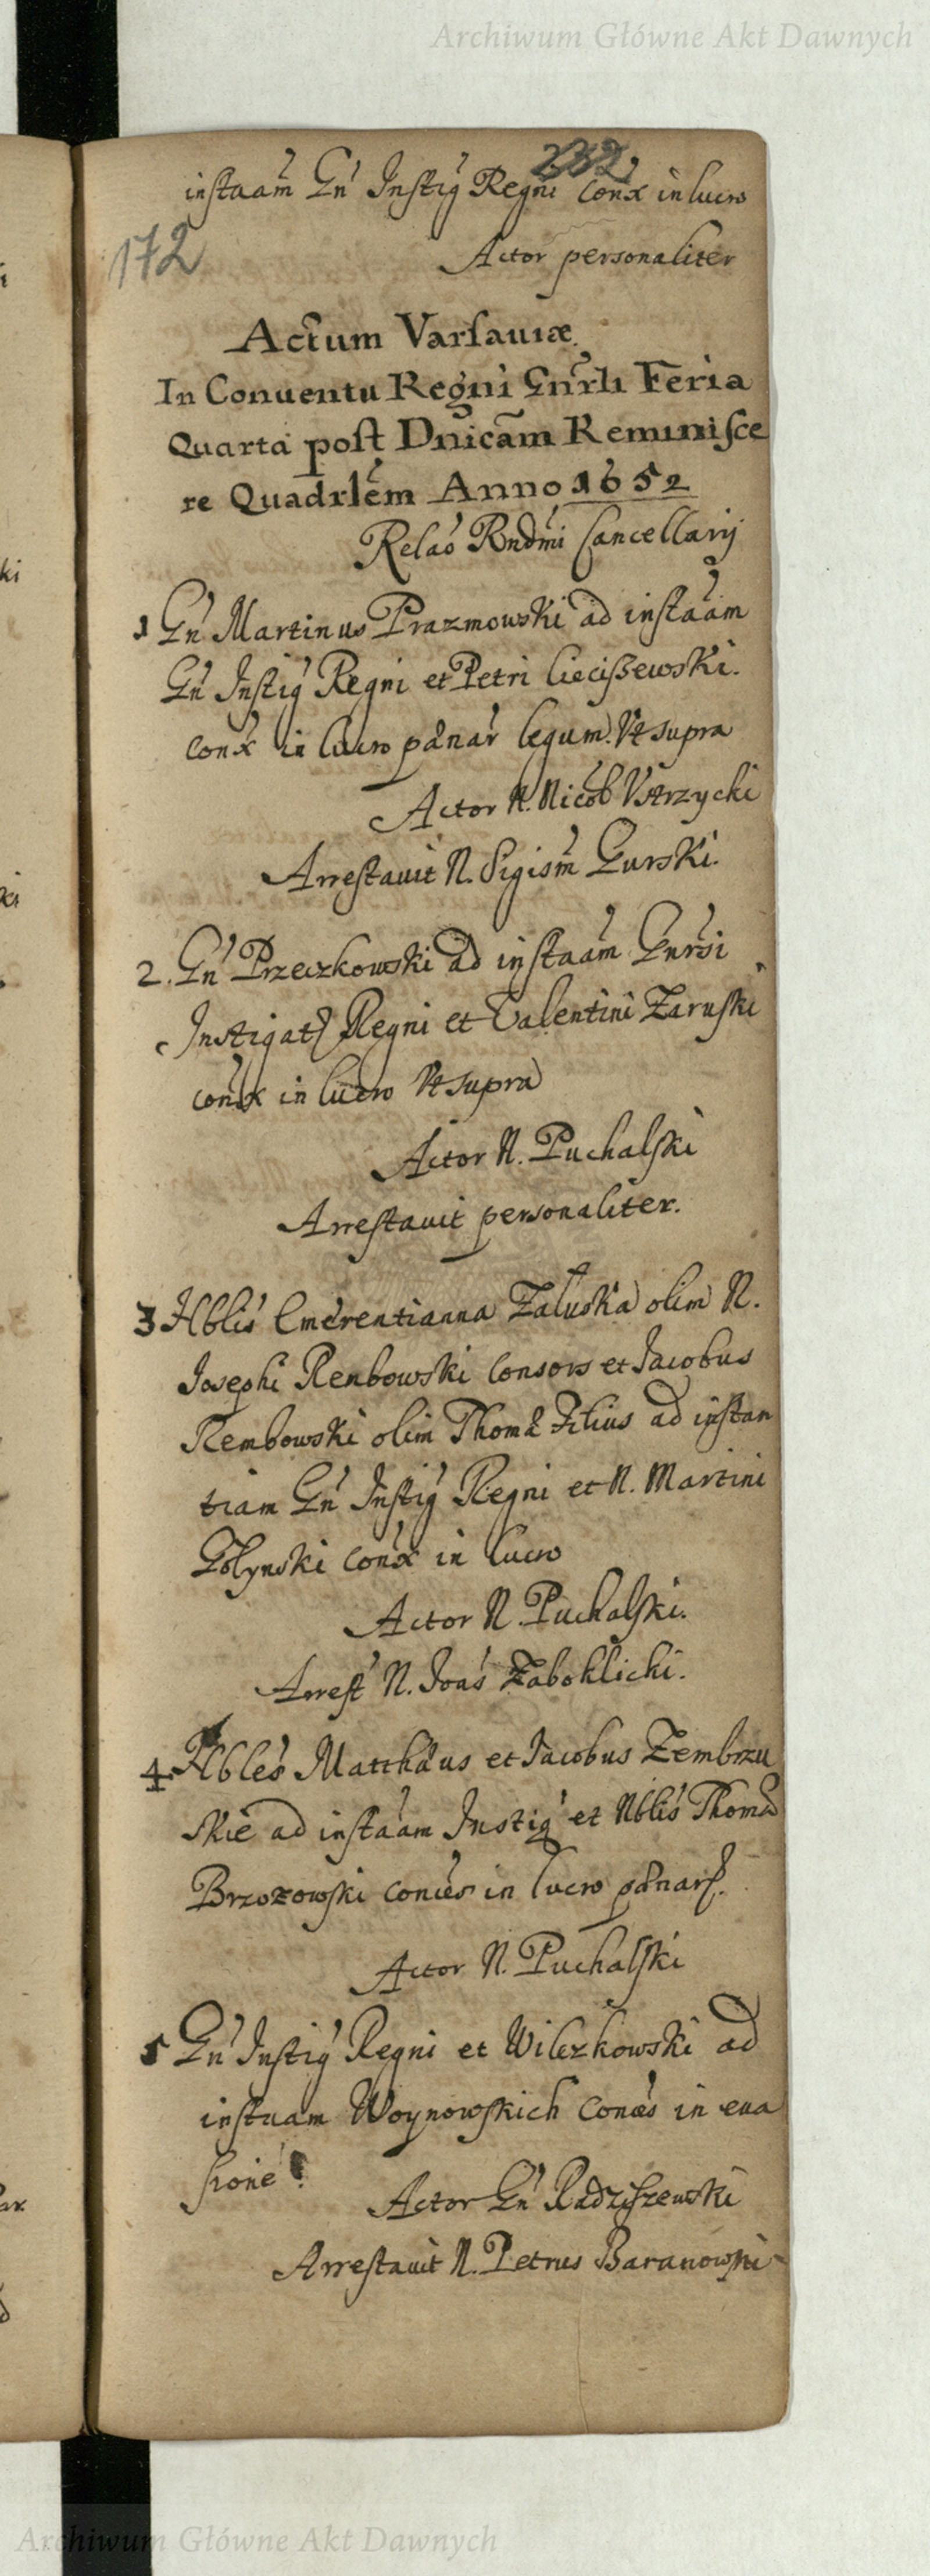 Archiwum Główne Akt Dawnych
232
instãam Gn̄ Instig Regni conx in lucro
172
Actor personaliter
Actum Varsauiæ
In Conuentu Regni Gnrli Feria
Quarta post Dnicam Reminisce
re Quadrlem Anno 1652
Relao Rndmi Cancellarij
1 Gn Martinus Prazmowski ad instaam
Gn Instig Regni et Petri Cieciszewski.
conx in lucro pænar legum. Vt supra
Actor N. Nicol Vstrzycki
Arrestauit N. Sigism Gurski.
2. Gn Przeczkowski ad instaam Gnrsi
Instigat Regni et Valentini Zaruski
conx in lucro Vt supra
Actor N. Puchalski
Arrestauit personaliter.
3 Nblis Emerentianna Zaluska olim N.
Josephi Renbowski Consors et Jacobus
Rembowski olim Thomæ Filius ad instan
tiam Gn Instig Regni et N. Martini
Golynski conx in lucro
Actor N. Puchalski.
Arrest N. Joas Zabohlicki.
4 Nbles Matthæus et Jacobus Zembrzu
skie ad instaam Instig et Nblis Thomæ
Brzozowski conces in lucro pænar.
Actor N. Puchalski
5 Gn Instig Regni et Wilczkowski ad
instaam Woynowskich conces in eua
sione
Actor Gn Radziszewski
Arrestauit N. Petrus Baranowski
Archiwum Główne Akt Dawnych